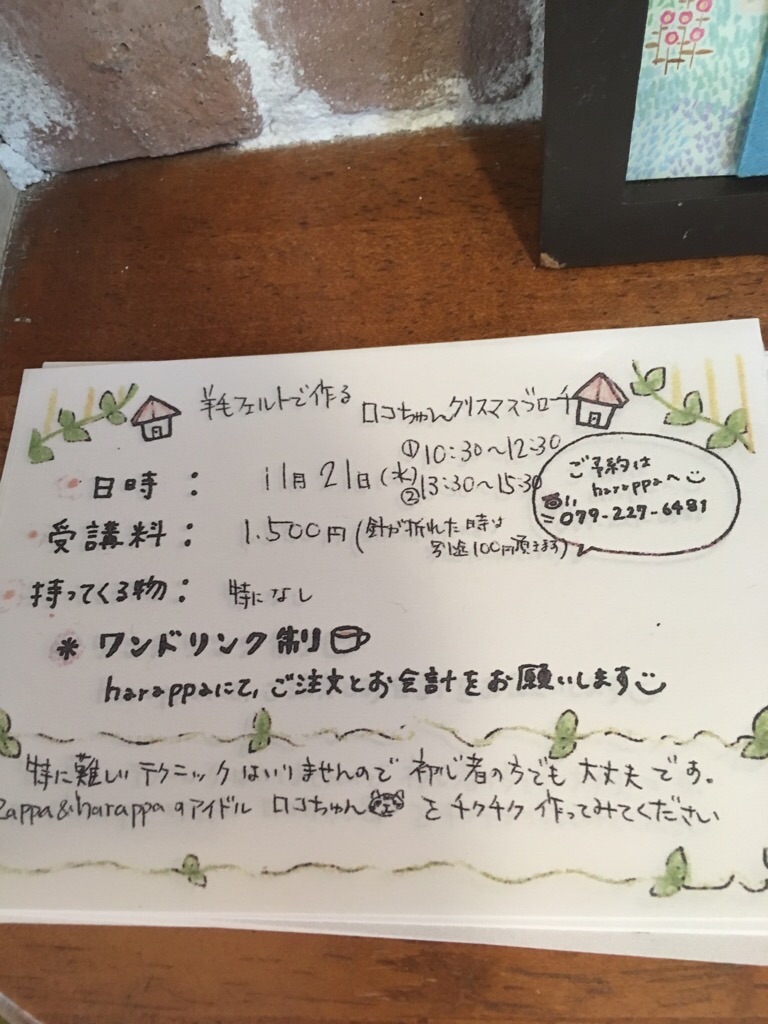 羊毛フェルトで作る ロコちゃんクリスマスブローチ
日時： 11月21日(水) ①10:30〜12:30
②13:30〜15:30
ご予約は
harappaへ
☎
=079-227-6481
受講料： 1.500円(針が折れた時は
別途100円頂きます)
持ってくる物： 特になし
＊ワンドリンク制
harappaにて、ご注文とお会計をお願いします
特に難しいテクニックはいりませんので初心者の方でも大丈夫です。
zappa&harappaのアイドル ロコちゃん をチクチク作ってみてください